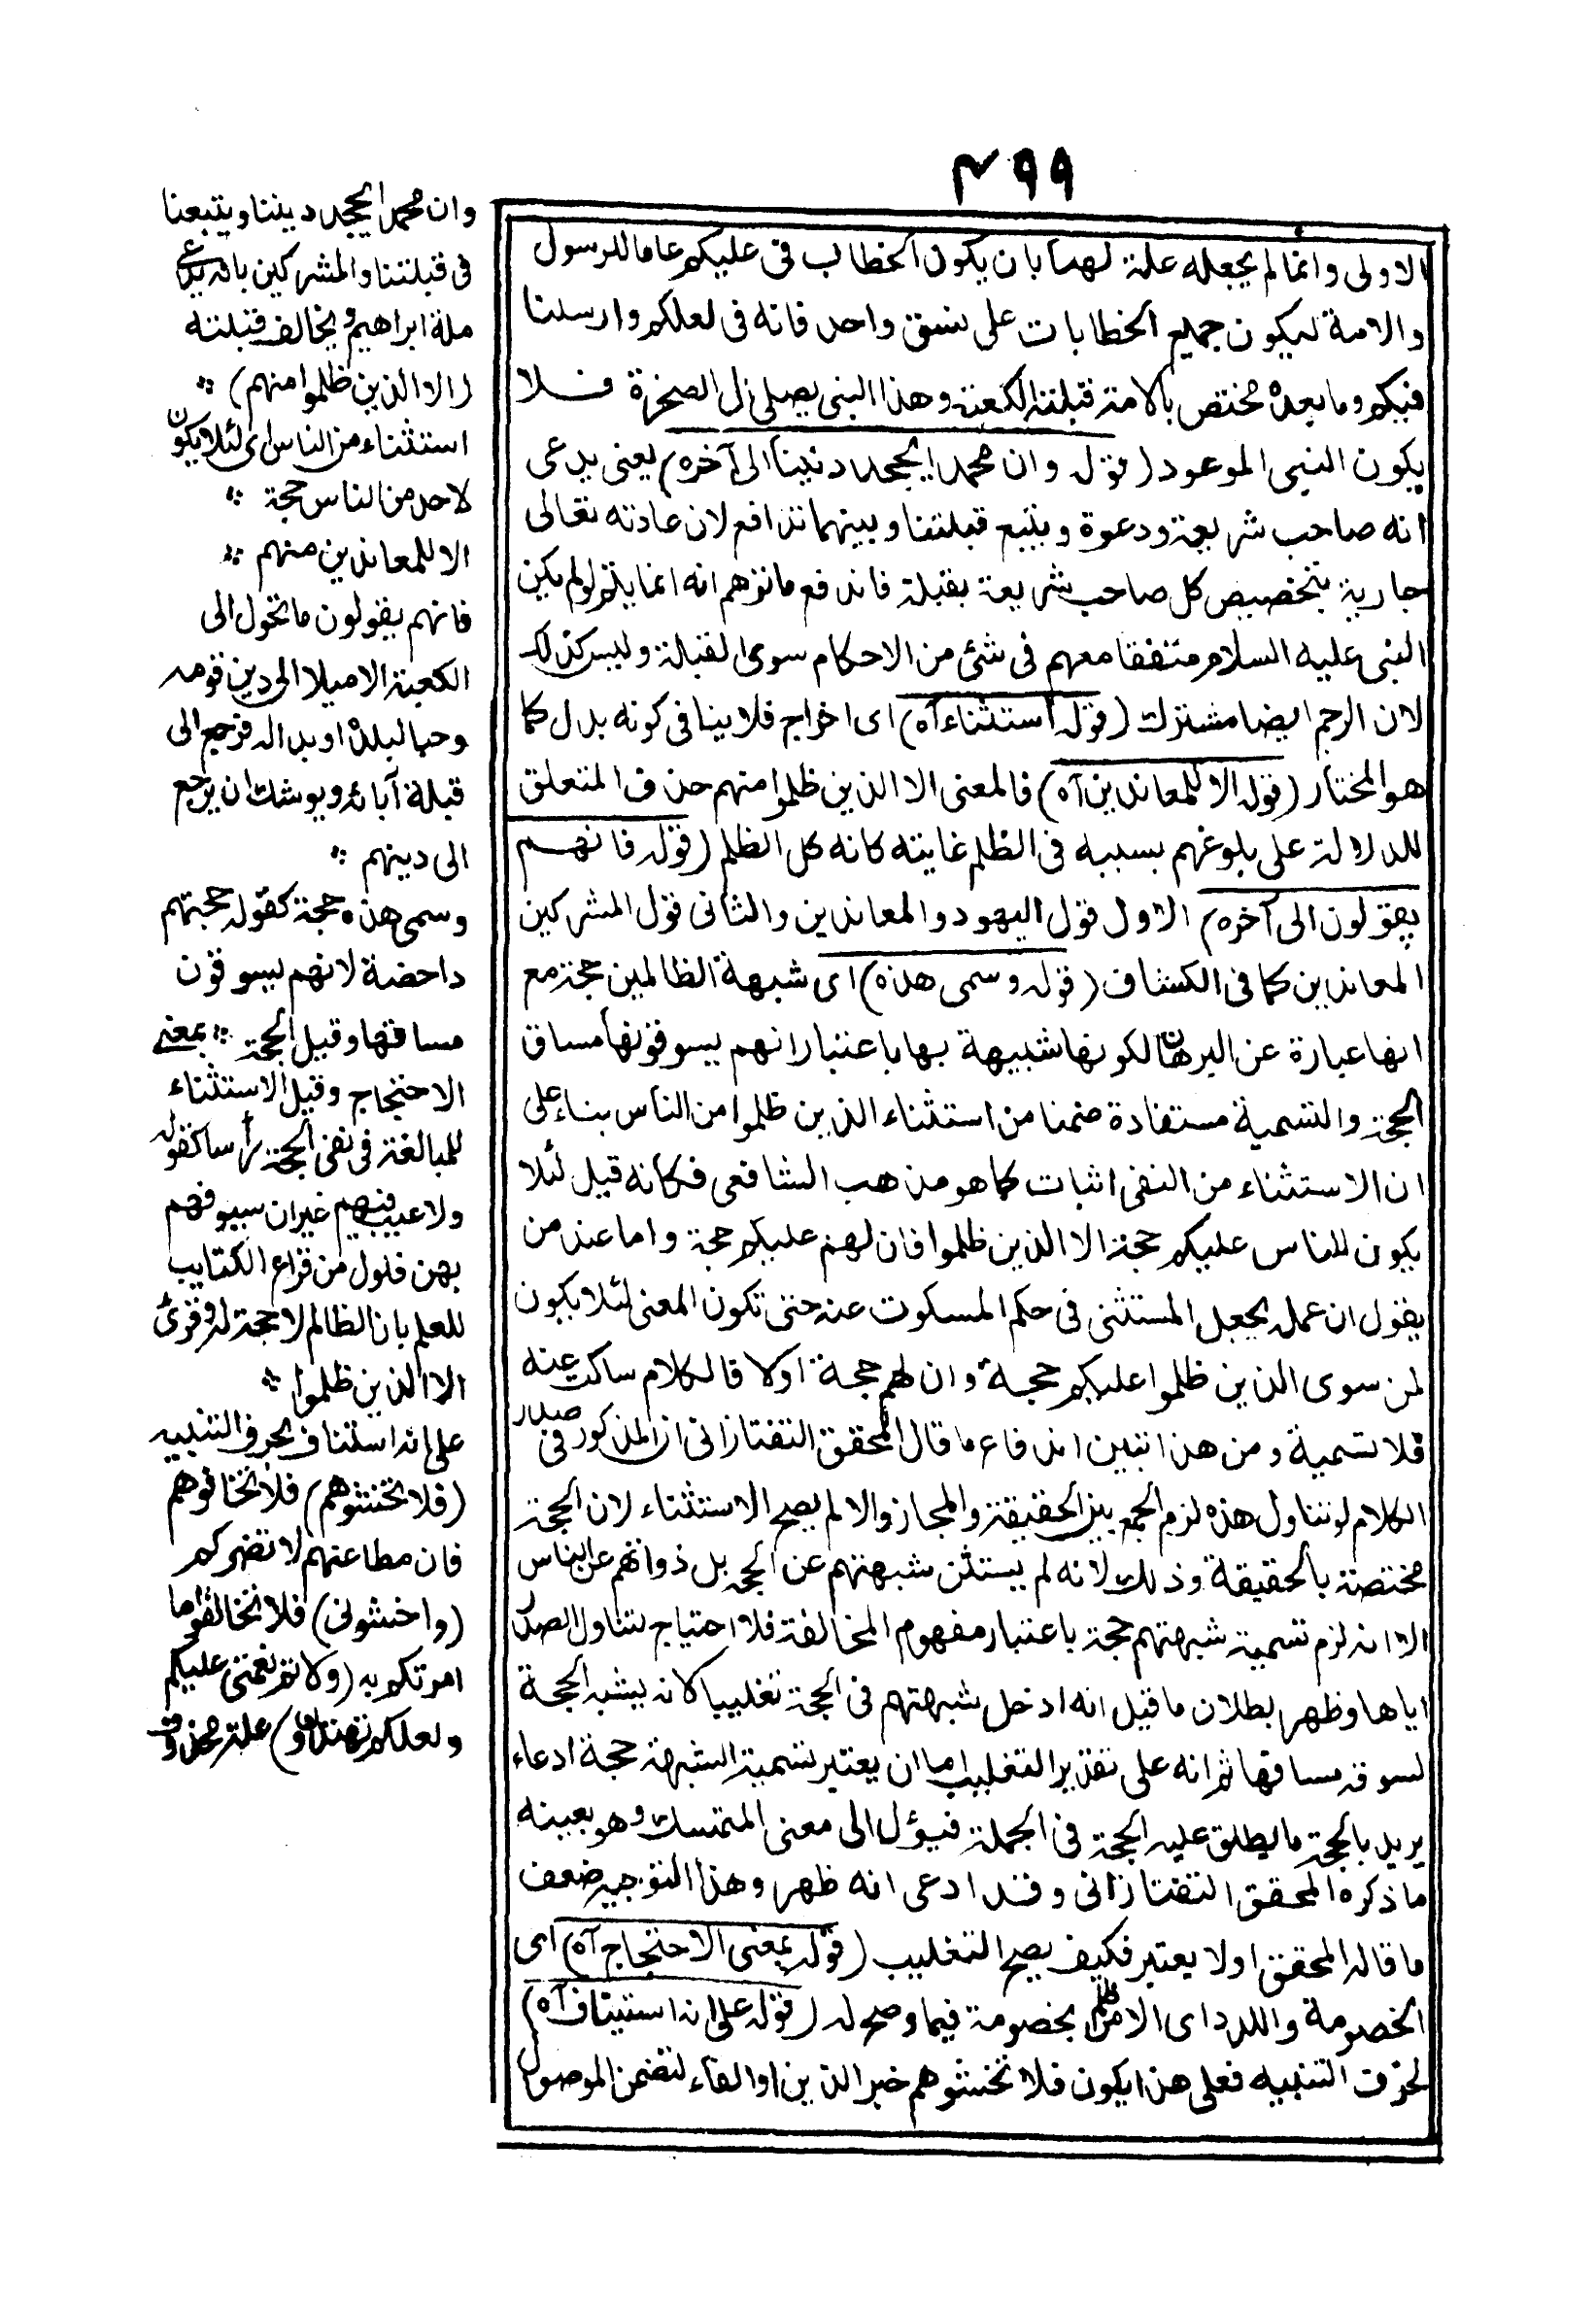 ٤٩٩
الاولى وانما لم يجعله علة لهما بان يكون الخطاب فى عليكم عاما للرسول
والامة ليكون جميع الخطابات على نسق واحد فانه فى لعلكم وارسلنا
فيكم وما بعده مختص بالامة قبلته الكعبة وهذا النبى يصلى الى الصخرة فلا
يكون النبى الموعود (قوله وان محمدا يجحد ديننا الى آخره) يعنى يدعى
انه صاحب شريعة ودعوة ويتبع قبلتنا وبينهما تدافع لان عادته تعالى
جارية بتخصيص كل صاحب شريعة بقبلة فاندفع ما توهم انه انما يتم لو لم يكن
النبى عليه السلام متفقا معهم فى شئ من الاحكام سوى القبلة وليس كذلك
لان الرجم ايضا مشترك (قوله استثناء آه) اى اخراج فلا ينافى كونه بدل كما
هو المختار (قوله الا للمعاندين آه) فالمعنى الا الذين ظلموا منهم حذف المتعلق
للدلالة على بلوغهم بسببه فى الظلم غايته كانه كل الظلم (قوله فانهم
يقولون الى آخره) الاول قول اليهود والمعاندين والثانى قول المشركين
المعاندين كما فى الكشاف (قوله وسمى هذه) اى شبهة الظالمين حجة مع
انها عبارة عن البرهان لكونها شبيهة بها باعتبار انهم يسوقونها مساق
الحجة والتسمية مستفادة ضمنا من استثناء الذين ظلموا من الناس بناء على
ان الاستثناء من النفى اثبات كما هو مذهب الشافعى فكانه قيل لئلا
يكون للناس عليكم حجة الا الذين ظلموا فان لهم عليكم حجة واما عند من
يقول ان عمله يجعل المستثنى فى حكم المسكوت عنه حتى تكون المعنى لئلا يكون
لمن سوى الذين ظلموا عليكم حجة وان لهم حجة اولا قالكلام ساكت عنه
فلا تسمية ومن هذا تبين اندفاع ما قال المحقق التفتازانى ان المذكور فى صدر
الكلام لو تناول هذه لزم الجمع بين الحقيقة والمجاز والا لم يصح الاستثناء لان الحجة
مختصة بالحقيقة وذلك لانه لم يستثن شبهتهم عن الحجة بل ذواتهم عن الناس
الا انه لزم تسمية شبهتهم حجة باعتبار مفهوم المخالفة فلا احتياج لتناول الصدر
اياها وظهر بطلان ما قيل انه ادخل شبهتهم فى الحجة تغليبا كانه يشبه الحجة
لسوقه مساقها ثم انه على تقدير التغليب اما ان يعتبر تسمية الشبهة حجة ادعاء
يريد بالحجة ما يطلق عليه الحجة فى الجملة فيؤل الى معنى المتمسك وهو بعينه
ما ذكره المحقق التفتازانى وقد ادعى انه ظهر وهذا التوجيه ضعف
ما قاله المحقق اولا يعتبر فكيف يصح التغليب (قوله بمعنى الاحتجاج آه) اى
الخصومة واللدد اى الامر بخصومة فيما وضح له (قوله على انه استيناف آه)
لحرف التنبيه فعلى هذا يكون فلا تخشوهم خبر الذين اوالفاء لتضمن الموصول
وان محمدا يجحد ديننا ويتبعنا
فى قبلتنا والمشركين بانه يدعى
ملة ابراهيم ويخالف قبلته
(الا الذين ظلموا منهم)
استثناء من الناس اى لئلا يكون
لاحد من الناس حجة
الا للمعاندين منهم
فانهم يقولون ما تحول الى
الكعبة الا ميلا الى دين قومه
وحبا لبلده او بدا له فرجع الى
قبلة آبائه ويوشك ان يرجع
الى دينهم
وسمى هذه حجة كقوله حجتهم
داحضة لانهم يسوقون
مساقها وقيل الحجة بمعنى
الاحتجاج وقيل الاستثناء
للمبالغة فى نفى الحجة رأسا كقوله
ولا عيب فيهم غير ان سيوفهم
بهن فلول من قراع الكتايب
للعلم بان الظالم لا حجة له وقرئ
الا الذين ظلموا
على انه استناف بحرف التنبيه
(فلا تخشوهم) فلا تخافوهم
فان مطاعنهم لا تضركم
(واخشونى) فلا تخالفوا ما
امرتكم به (ولاتم نعمتى عليكم
ولعلكم تهتدون) علة محذوف